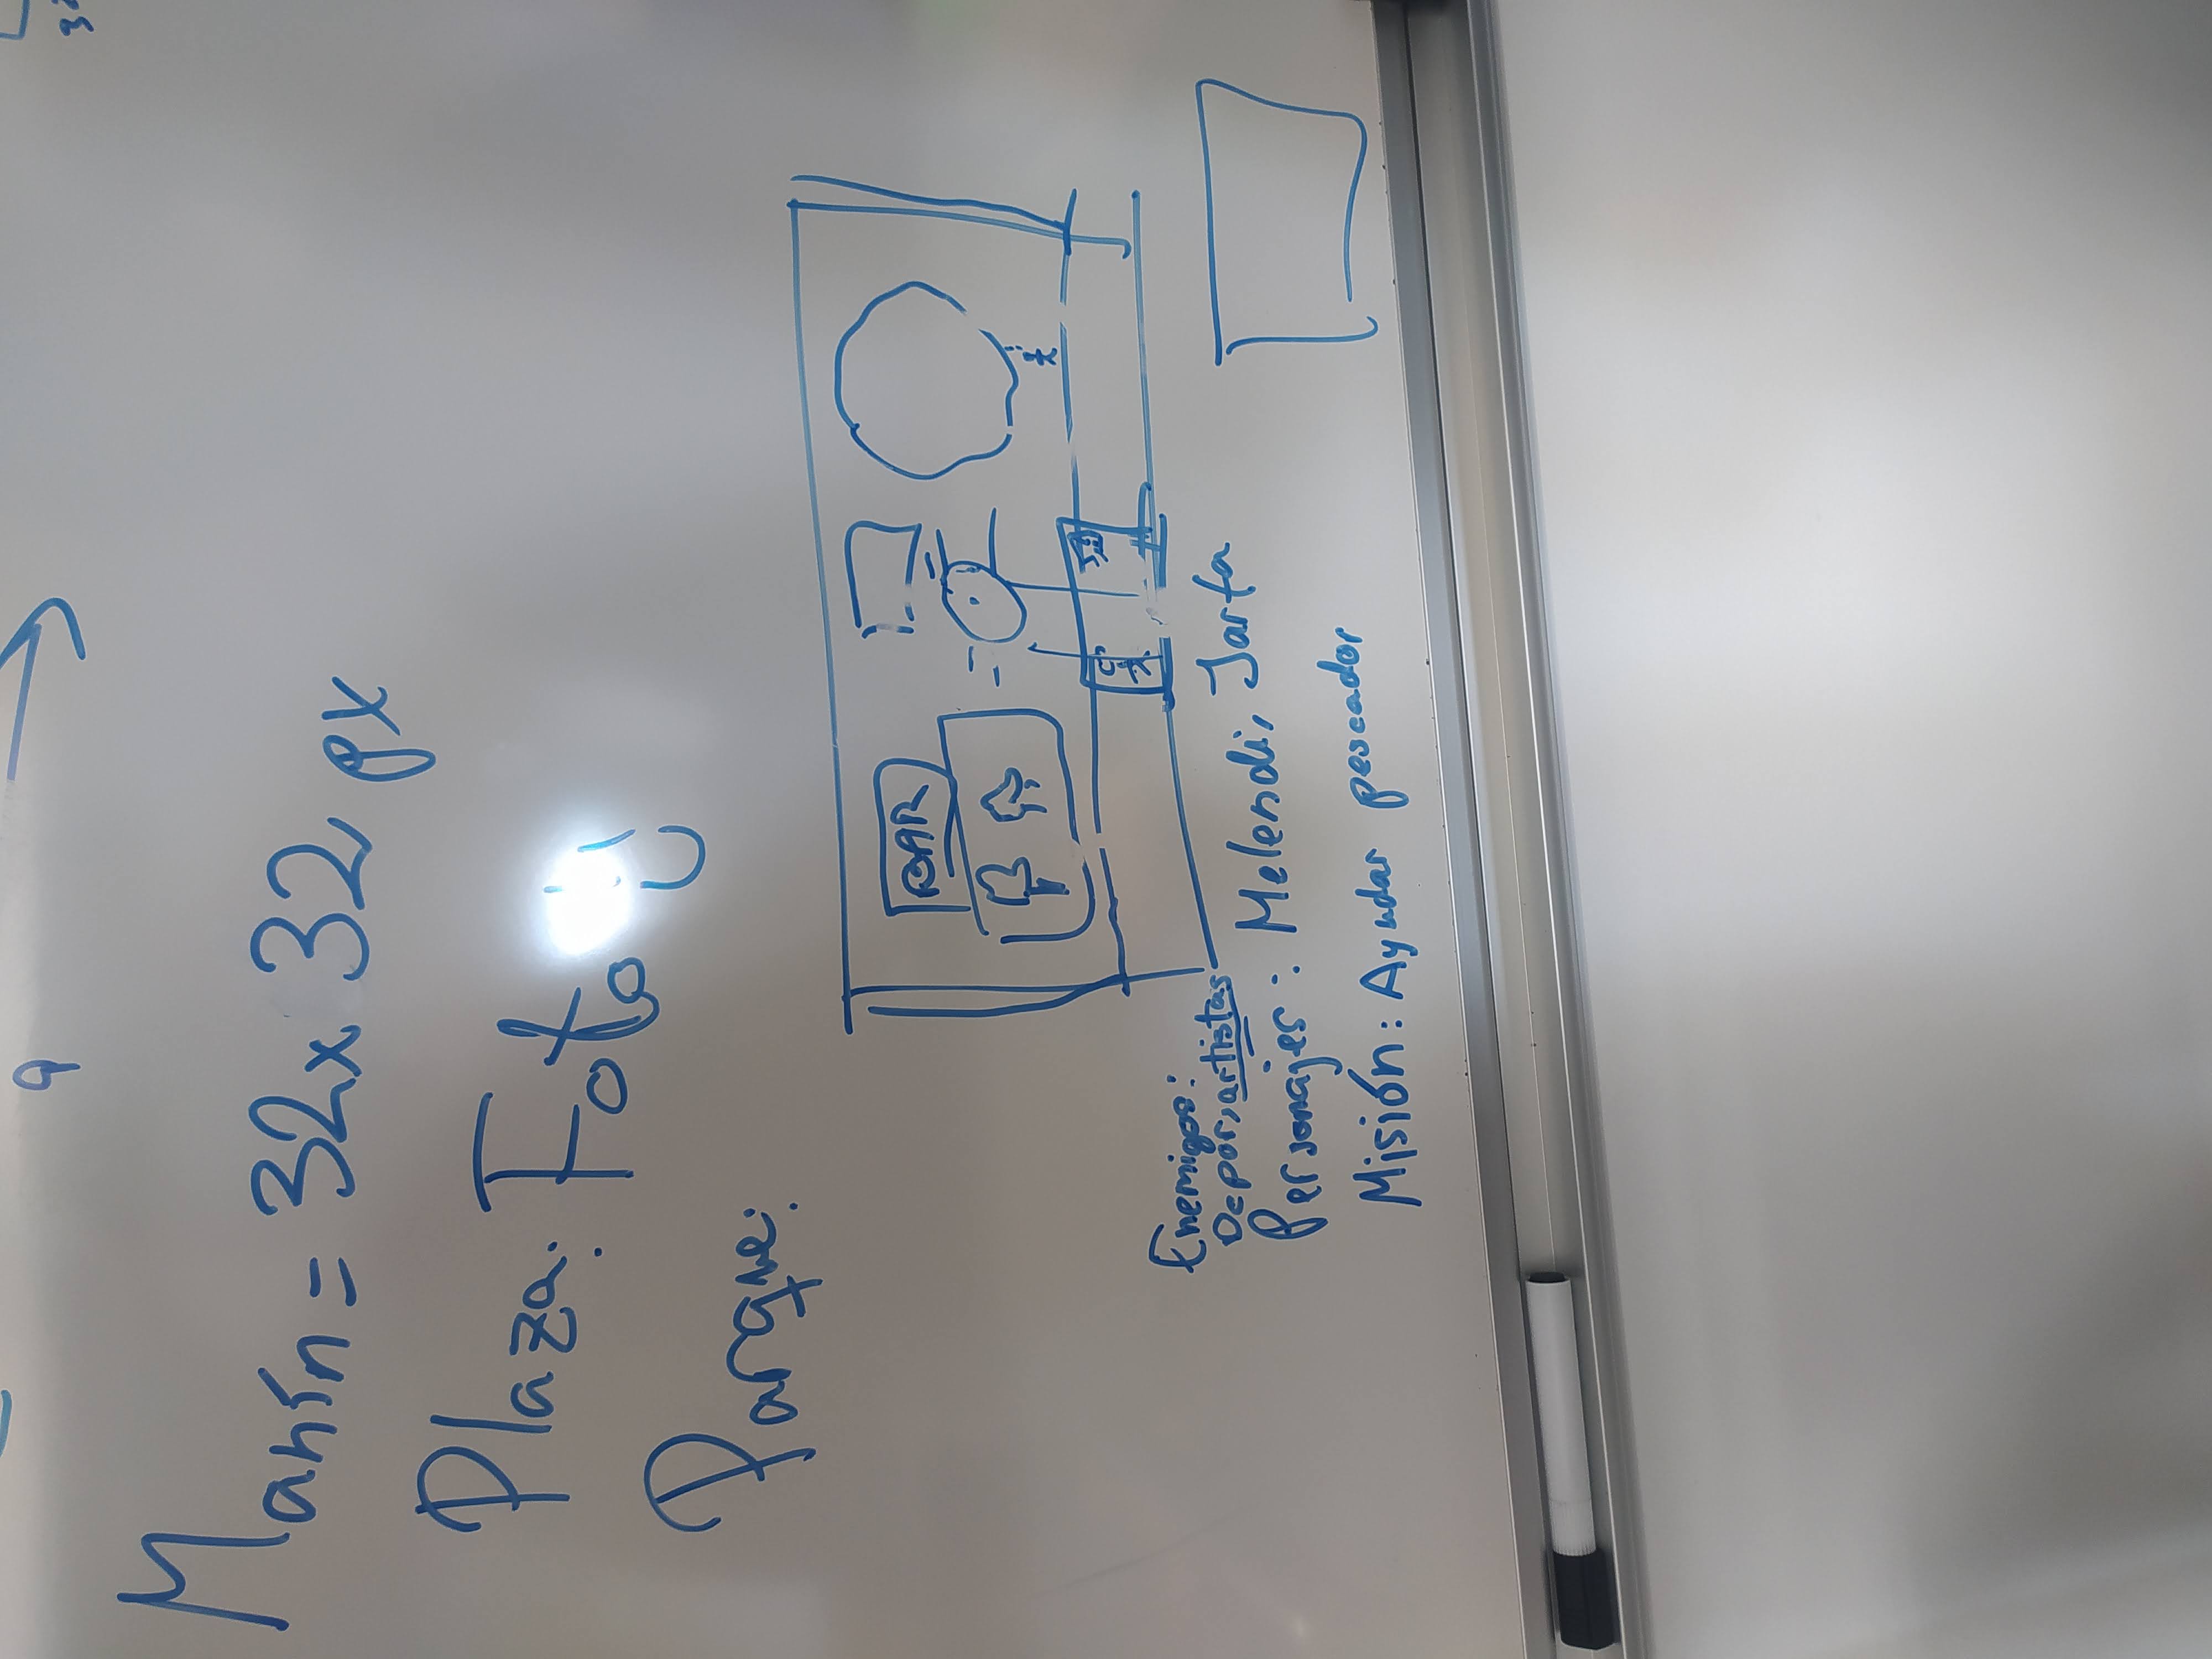 9
Manín = 32x 32 px
Plaza: Foto
Parque:
BAR
Enemigos:
Depor, artistas
Personajes: Melendi, Jarfa
Misión: Ayudar pescador